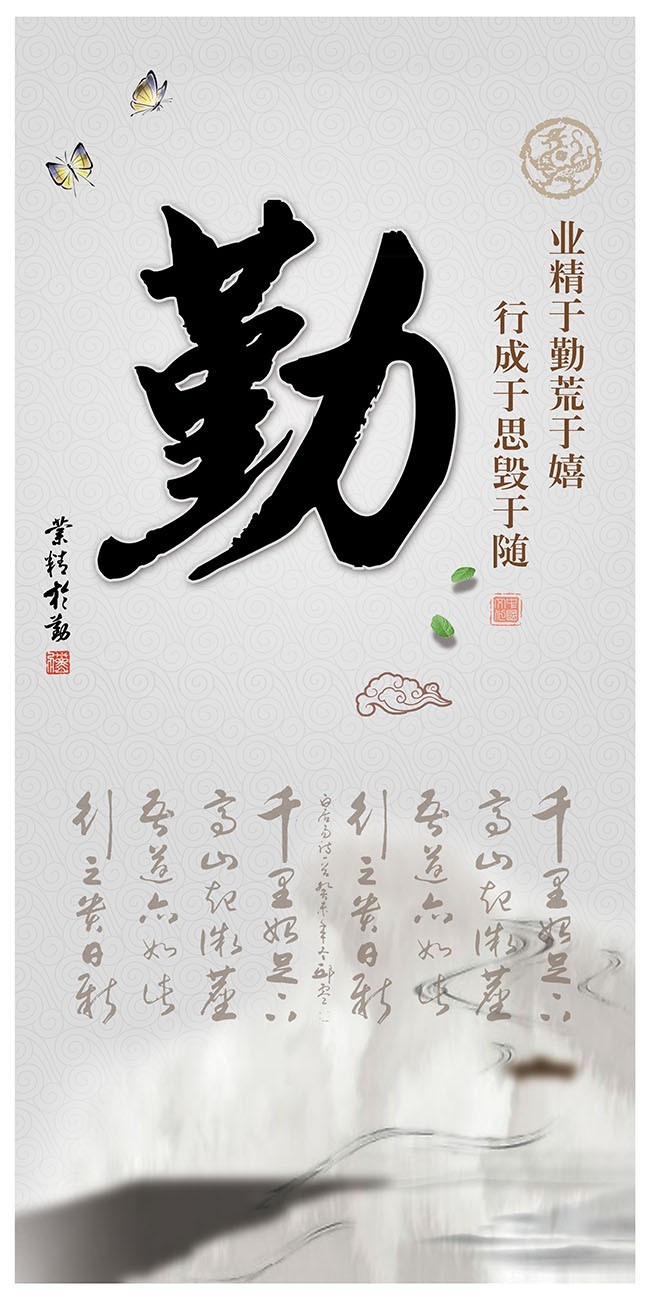 勤
业精于勤荒于嬉
行成于思毁于随
業精於勤
千里始足下
高山起微塵
吾道亦如此
行之貴日新
白居易詩一首
千里始足下
高山起微塵
吾道亦如此
行之貴日新